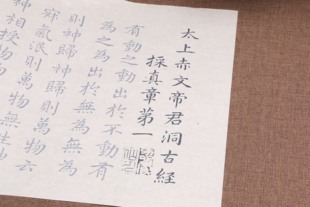 太上赤文帝君洞古經
採真章第一
有動之動出於不動有
為之為出於無為無為
則神歸神歸則萬物云
寂氣泯則萬物無生
神相授物